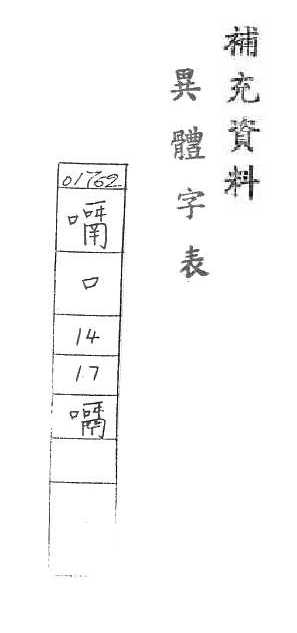 補充資料
異體字表
01762
口
14
17